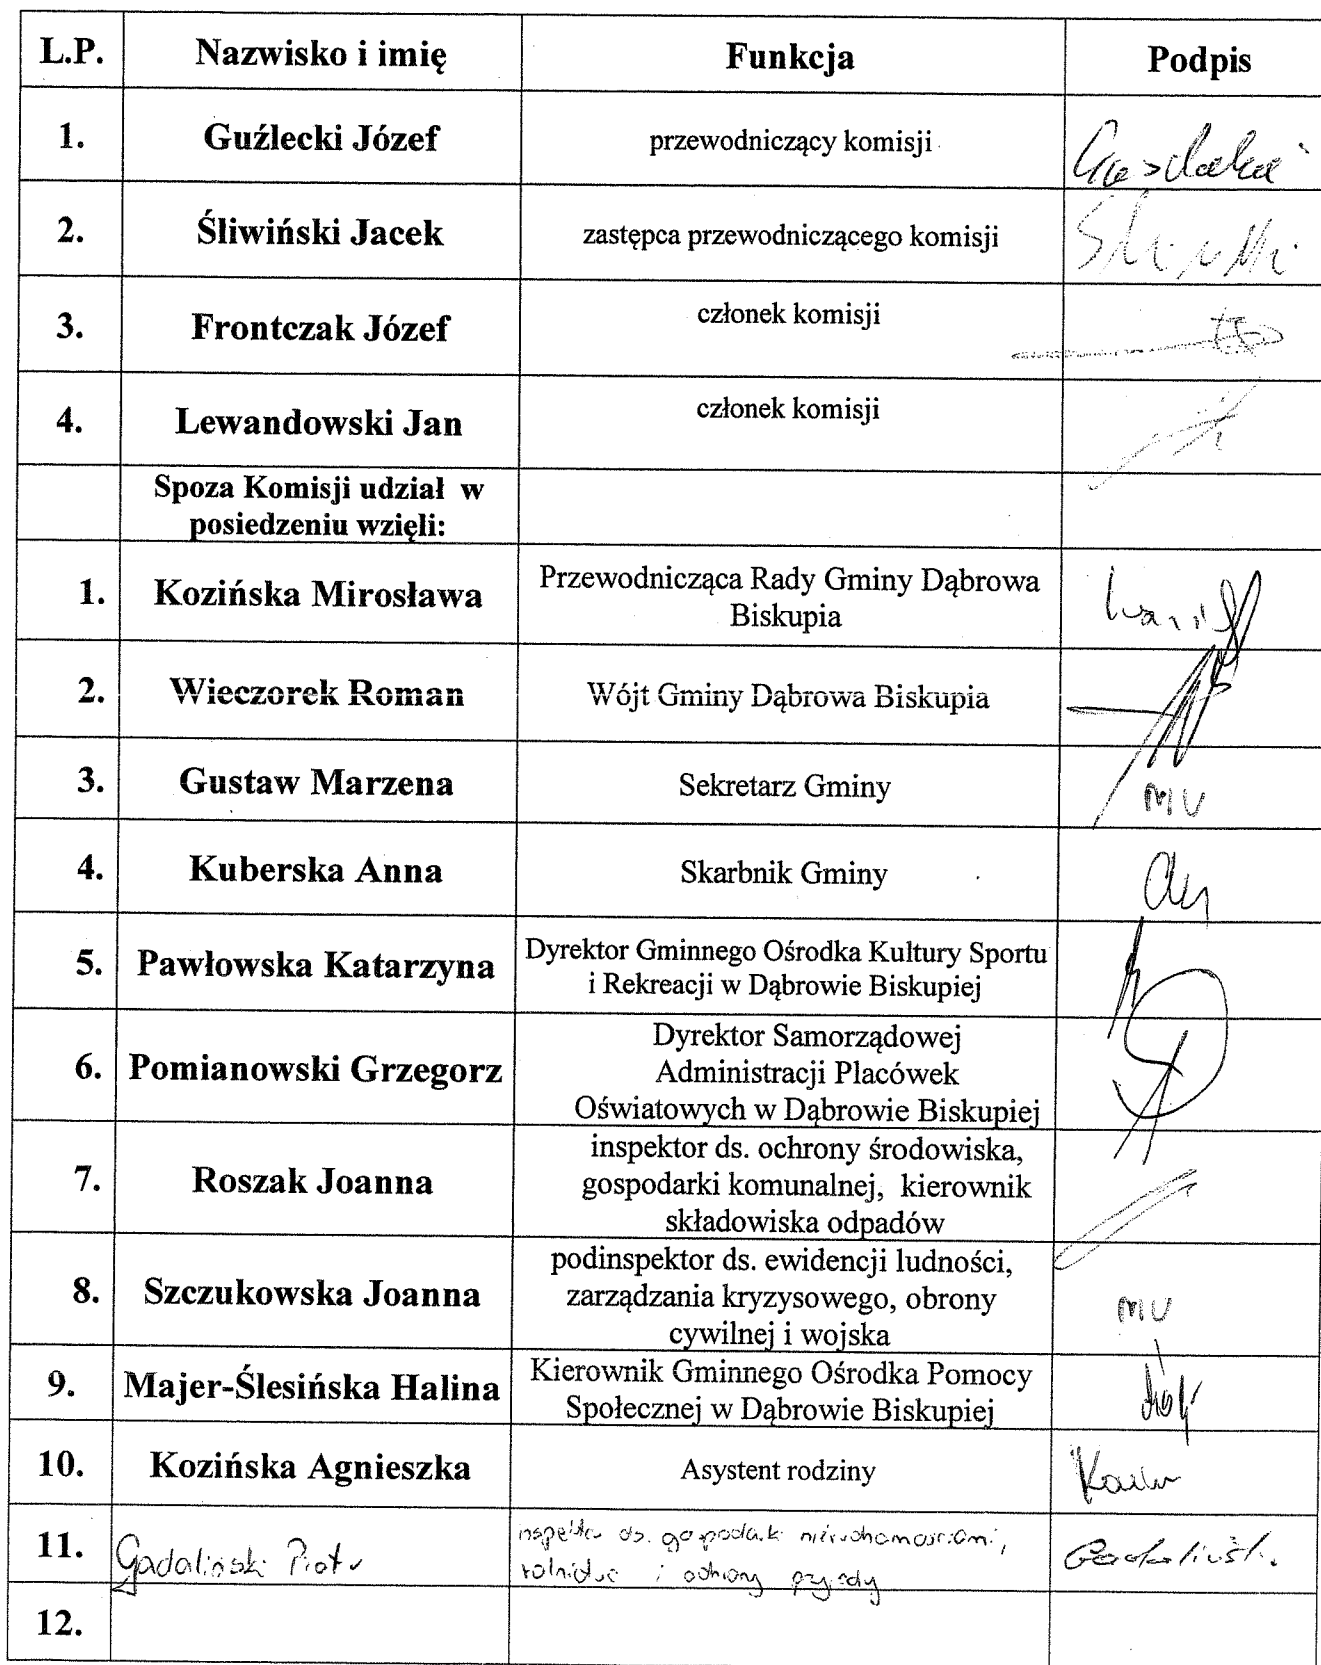 L.P. Nazwisko i imię Funkcja Podpis
1. Guźlecki Józef przewodniczący komisji
2. Śliwiński Jacek zastępca przewodniczącego komisji
3. Frontczak Józef członek komisji
4. Lewandowski Jan członek komisji
Spoza Komisji udział w
posiedzeniu wzięli:
1. Kozińska Mirosława Przewodnicząca Rady Gminy Dąbrowa
Biskupia
2. Wieczorek Roman Wójt Gminy Dąbrowa Biskupia
3. Gustaw Marzena Sekretarz Gminy
4. Kuberska Anna Skarbnik Gminy
5. Pawłowska Katarzyna Dyrektor Gminnego Ośrodka Kultury Sportu
i Rekreacji w Dąbrowie Biskupiej
6. Pomianowski Grzegorz Dyrektor Samorządowej
Administracji Placówek
Oświatowych w Dąbrowie Biskupiej
7. Roszak Joanna inspektor ds. ochrony środowiska,
gospodarki komunalnej, kierownik
składowiska odpadów
8. Szczukowska Joanna podinspektor ds. ewidencji ludności,
zarządzania kryzysowego, obrony
cywilnej i wojska
9. Majer-Ślesińska Halina Kierownik Gminnego Ośrodka Pomocy
Społecznej w Dąbrowie Biskupiej
10. Kozińska Agnieszka Asystent rodziny
11. Gadaliński Piotr inspektor ds. gospodarki nieruchomościami,
rolnictwa i ochrony przyrody Gadaliński
12.